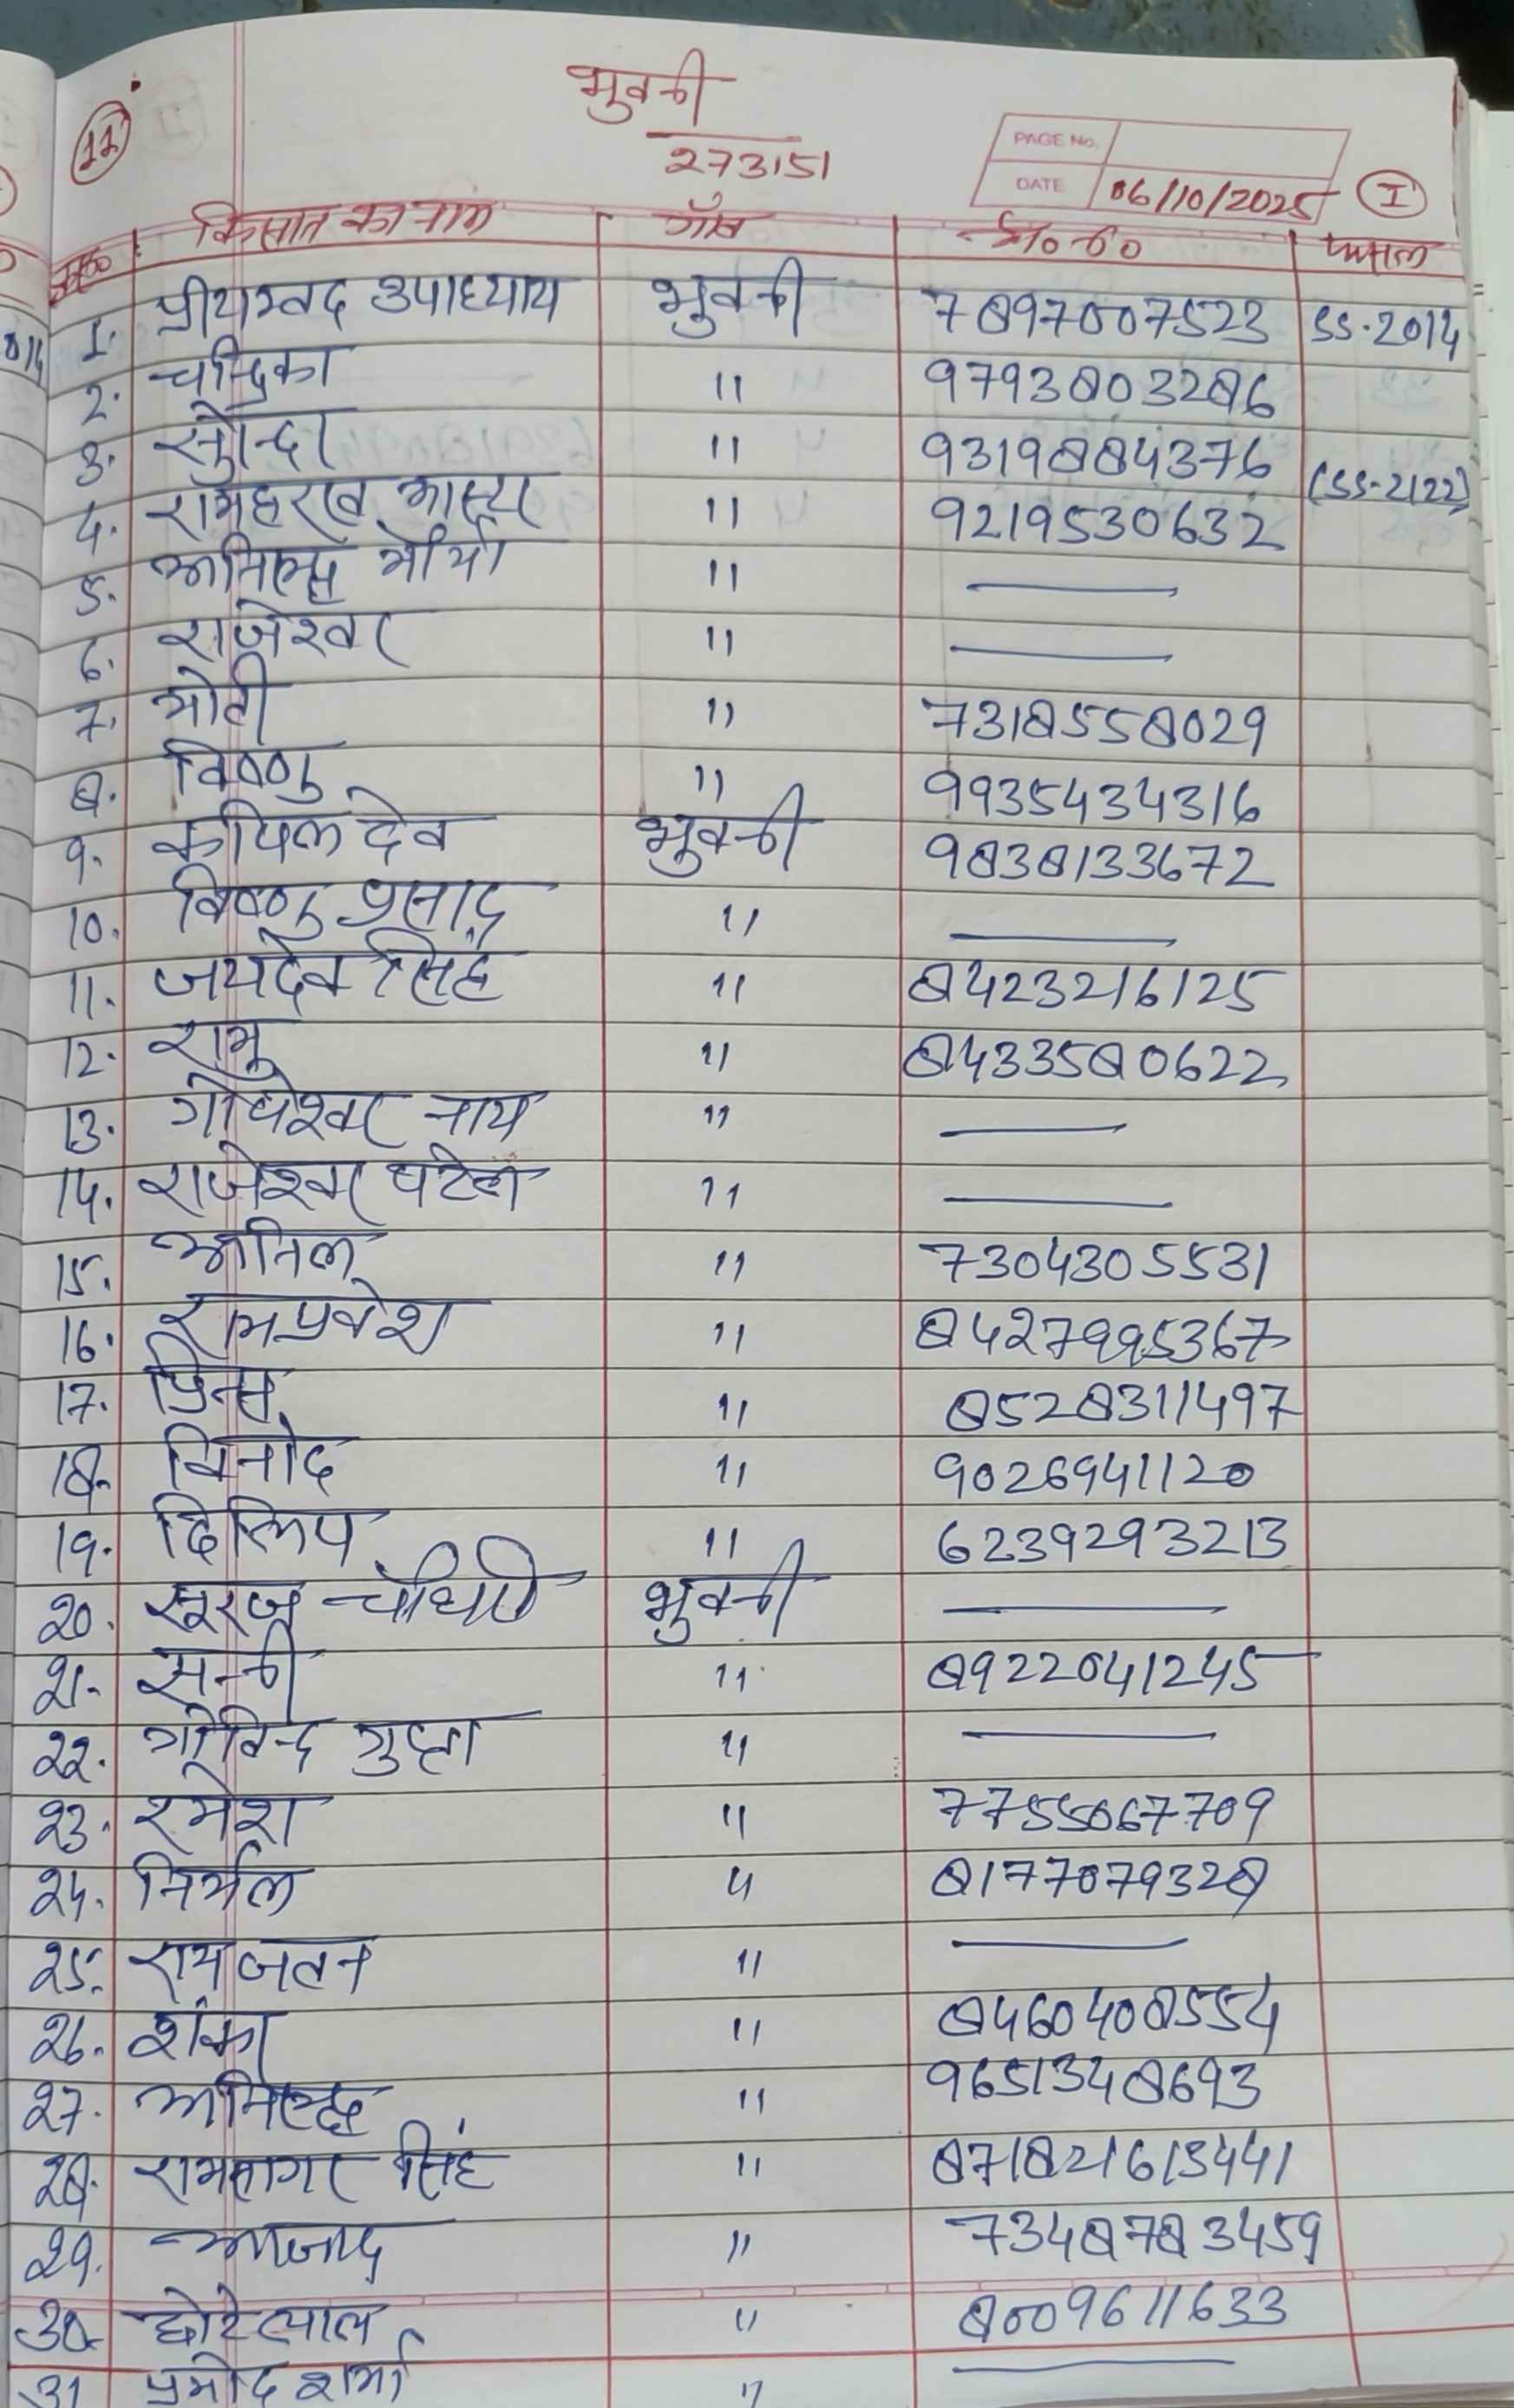 11
भुवनी
273151
PAGE No.
DATE 06/10/2025 I
क्र०सं० किसान का नाम गाँव मो० नं० फसल
1. प्रीयम्वद उपाध्याय भुवनी 7897007523 SS-2014
2. चन्द्रिका " 9793803286
3. सुरेन्द्र " 9319884376 (SS-2122)
4. रामहरख मास्टर " 9219530632
5. अनिरुद्ध मौर्या " —
6. राजेश्वर " —
7. मोती " 7318558029
8. विष्णु " 9935434316
9. कपिल देव भुवनी 9838133672
10. विष्णु प्रसाद " —
11. जयदेव सिंह " 8423216125
12. रामू " 8433580622
13. गोपेश्वर नाथ " —
14. राजेश्वर पटेल " —
15. अनिल " 7304305531
16. रामप्रवेश " 8427995367
17. प्रिन्स " 8528311497
18. विनोद " 9026941120
19. दिलिप " 6239293213
20. सूरज चौधरी भुवनी —
21. सन्नी " 8922041245
22. गोविन्द गुप्ता " —
23. रमेश " 7755067709
24. निर्मल " 8177079328
25. रामजतन " —
26. शंकर " 8460408554
27. अनिरुद्ध " 9651348693
28. रामसागर सिंह " 871821613441
29. आजाद " 7348783459
30. छोटेलाल " 8009611633
31 प्रमोद शर्मा " —